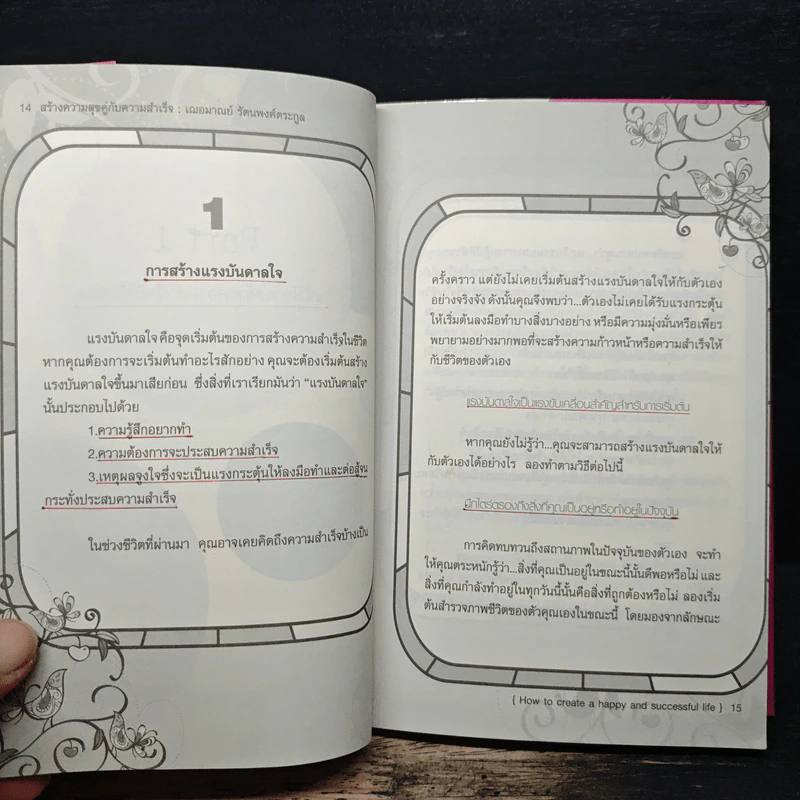 14 สร้างความสุขคู่กับความสำเร็จ : เฌอมาณย์ รัตนพงศ์ตระกูล
1
การสร้างแรงบันดาลใจ
แรงบันดาลใจ คือจุดเริ่มต้นของการสร้างความสำเร็จในชีวิต
หากคุณต้องการจะเริ่มต้นทำอะไรสักอย่าง คุณจะต้องเริ่มต้นสร้าง
แรงบันดาลใจขึ้นมาเสียก่อน ซึ่งสิ่งที่เราเรียกมันว่า “แรงบันดาลใจ”
นั้นประกอบไปด้วย
1.ความรู้สึกอยากทำ
2.ความต้องการจะประสบความสำเร็จ
3.เหตุผลจูงใจซึ่งจะเป็นแรงกระตุ้นให้ลงมือทำและต่อสู้จน
กระทั่งประสบความสำเร็จ
ในช่วงชีวิตที่ผ่านมา คุณอาจเคยคิดถึงความสำเร็จบ้างเป็น
ครั้งคราว แต่ยังไม่เคยเริ่มต้นสร้างแรงบันดาลใจให้กับตัวเอง
อย่างจริงจัง ดังนั้นคุณจึงพบว่า...ตัวเองไม่เคยได้รับแรงกระตุ้น
ให้เริ่มต้นลงมือทำบางสิ่งบางอย่าง หรือมีความมุ่งมั่นหรือเพียร
พยายามอย่างมากพอที่จะสร้างความก้าวหน้าหรือความสำเร็จให้
กับชีวิตของตัวเอง
แรงบันดาลใจเป็นแรงขับเคลื่อนสำคัญสำหรับการเริ่มต้น
หากคุณยังไม่รู้ว่า...คุณจะสามารถสร้างแรงบันดาลใจให้
กับตัวเองได้อย่างไร ลองทำตามวิธีต่อไปนี้
ฝึกไตร่ตรองถึงสิ่งที่คุณเป็นอยู่หรือทำอยู่ในปัจจุบัน
การคิดทบทวนถึงสถานภาพในปัจจุบันของตัวเอง จะทำ
ให้คุณตระหนักรู้ว่า...สิ่งที่คุณเป็นอยู่ในขณะนี้นั้นดีพอหรือไม่ และ
สิ่งที่คุณกำลังทำอยู่ในทุกวันนี้นั้นคือสิ่งที่ถูกต้องหรือไม่ ลองเริ่ม
ต้นสำรวจภาพชีวิตของตัวคุณเองในขณะนี้ โดยมองจากลักษณะ
{ How to create a happy and successful life } 15